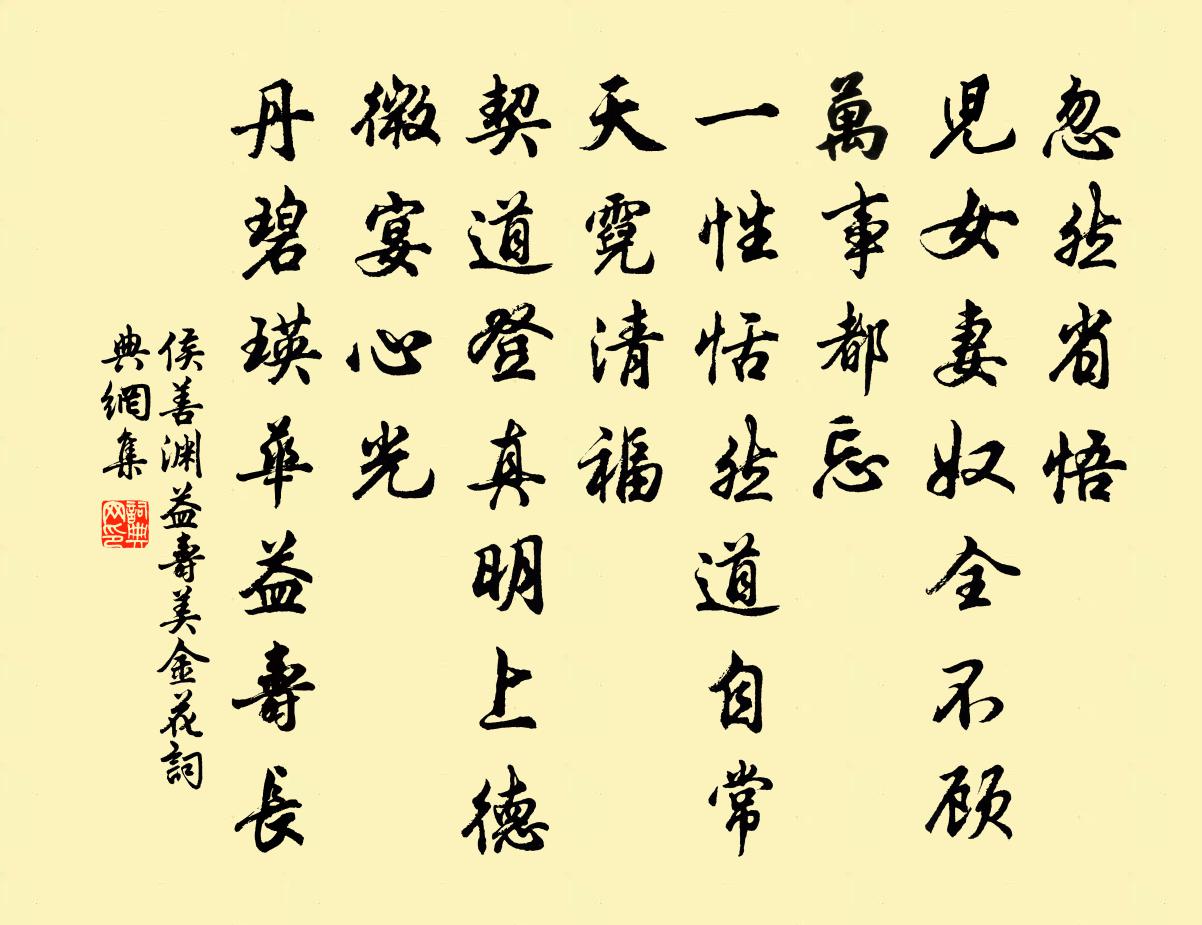 忽然省悟
児女妻奴全不顾
萬事都忘
一性恬然道自常
天霓清福
契道登真明上德
微宴心光
丹碧瑛華益壽長
侯善渊益壽美金花詞
典網集
詞典网印